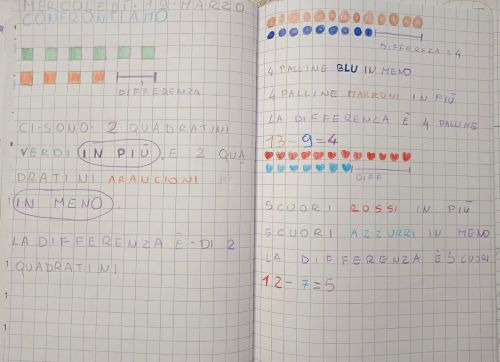 MERCOLEDÌ 19 MARZO
CONFRONTIAMO
DIFFERENZA
CI SONO 2 QUADRATINI
VERDI IN PIÙ E 2 QUA
DRATINI ARANCIONI
IN MENO.
LA DIFFERENZA È DI 2
QUADRATINI
DIFFEREZA = 4
4 PALLINE BLU IN MENO
4 PALLINE MARRONI IN PIÙ
LA DIFFERENZA È 4 PALLINE
13 - 9 = 4
DIFF
5 CUORI ROSSI IN PIÙ
5 CUORI AZZURRI IN MENO
LA DIFFERENZA È 5 CUORI
12 - 7 = 5